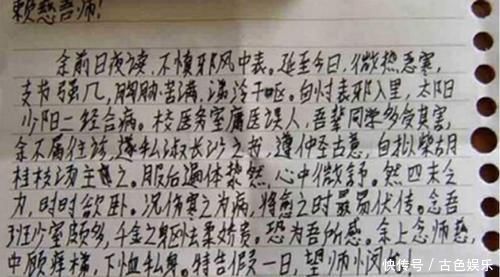 赖慈吾师!
余前日夜读,不慎邪风中表。延至今日,微热恶寒,
支节强几,胸胁苦满,涕泠干呕。自忖表邪入里,太阳
少阳一经合病。校医务室庸医误人,吾辈同学多受其害,
余不属往诊,遂私淑长沙之书,遵仲圣古意,自拟柴胡
桂枝汤主之。服后遍体漐然,心中微舒。然四末乏
力,时时欲卧。况伤寒之为病,将愈之时最易伏传。念吾
班少室颇多,千金之身怯柔娇贵。恐为吾所感。余上念师慈,
中顾痒横,下恤私身。特告假一日,望师悯
快传号 / 古色娱乐